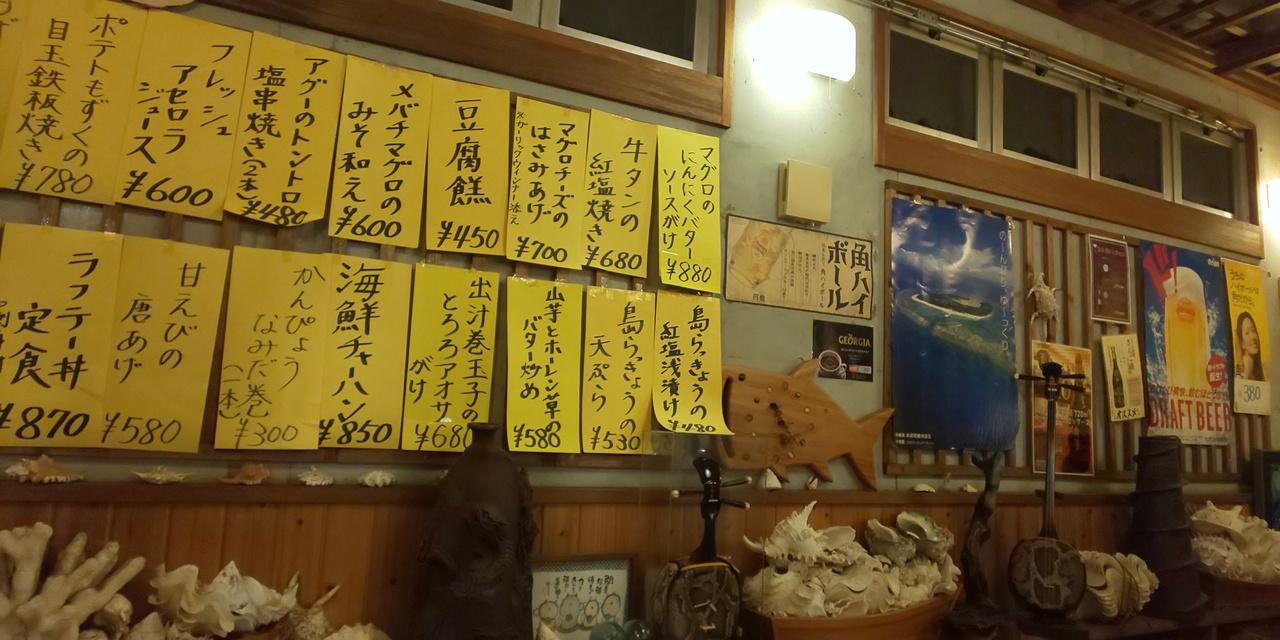 ポテトもずくの
目玉鉄板焼き
¥780
フレッシュ
アセロラ
ジュース
¥600
アグーのトントロ
塩串焼き(2本)
¥480
メバチマグロの
みそ和え
¥600
豆腐餻
¥450
マグロチーズの
はさみあげ
¥700
牛タンの
紅塩焼き
¥680
マグロの
にんにくバター
ソースがけ
¥880
ラフテー丼
定食
¥870
甘えびの
唐あげ
¥580
かんぴょう
なみだ巻
(一本)
¥300
海鮮チャーハン
¥850
出汁巻玉子の
とろろアオサ
がけ
¥680
山芋とホーレン草の
バター炒め
¥580
島らっきょうの
天ぷら
¥530
島らっきょうの
紅塩浅漬け
¥480
角ハイ
ボール
GEORGIA
のーんびり ゆーっくり
オススメ
Orion
DRAFT BEER
380